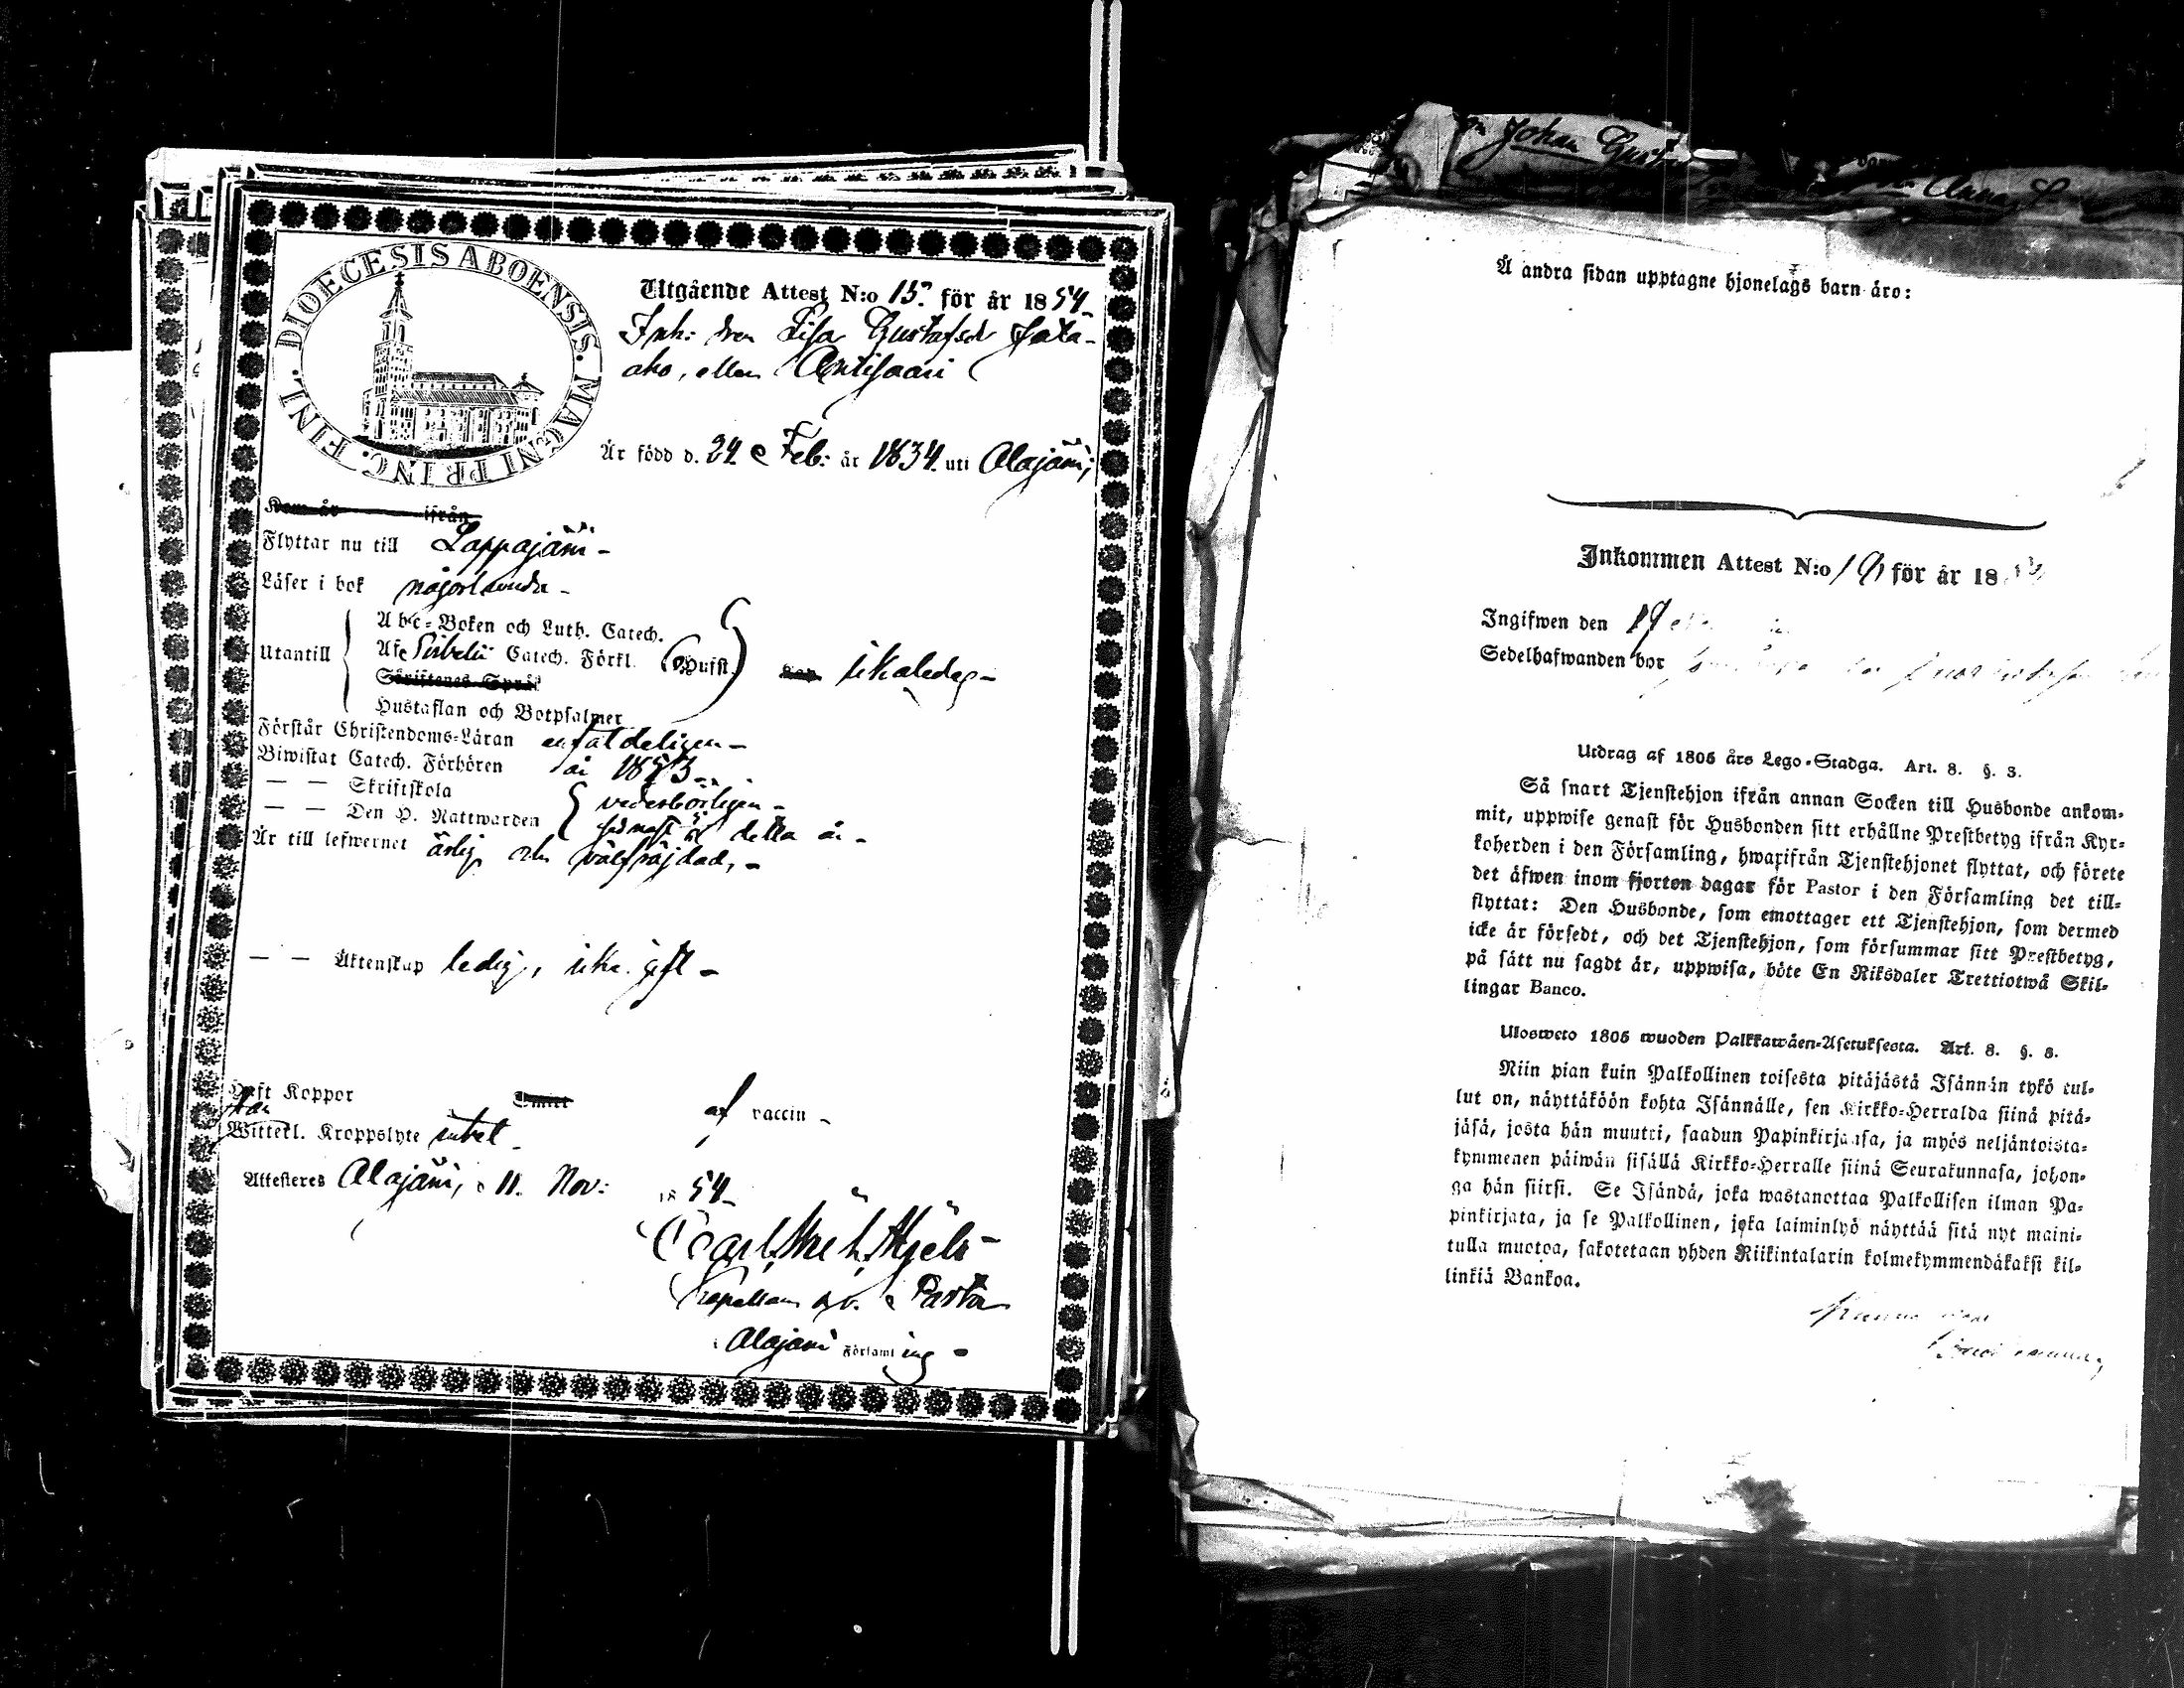 DIOECESIS ABOENSIS. MAGNI PRINC. FINL.
Utgående Attest N:o 15. för år 1854.
Inh: dren Lisa Gustafsdr Jata-
aho, eller Antisaari
Är född d. 24 e Feb: år 1834. uti Alajärvi,
Kom år ifrån
Flyttar nu till Lappajärvi -
Läser i bok någorlunda -
Utantill
Abc-Boken och Luth. Catech.
Afe Svebelii Catech. Förkl. (Hufst.)
Skriftenes Språk
Hustaflan och Botpsalmer
Förstår Christendoms-Läran enfaldeligen -
Biwistat Catech. Förhören år 1853 -
— — Skriftskola wederbörligen -
— — Den H. Nattwarden sednast detta år -
Är till lefwernet ärlig och välfräjdad, -
— — Äktenskap ledig, icke gift -
Haft Koppor af vaccin -
Witterl. Kroppslyte intet -
Attesteres Alajärvi, d 11. Nov: 1854 -
Carl
Kapellan o. v. Pastor
Alajärvi Församling -
Johan Gustaf
Anna
Å andra sidan upptagne hjonelags barn äro:
Inkommen Attest N:o för år 18
Ingifwen den 19
Sedelhafwanden bor
Utdrag af 1805 års Lego-Stadga. Art. 8. §. 3.
Så snart Tjenstehjon ifrån annan Socken till Husbonde ankom-
mit, uppwise genast för Husbonden sitt erhållne Prestbetyg ifrån Kyr-
koherden i den Församling, hwarifrån Tjenstehjonet flyttat, och förete
det äfwen inom fjorton dagar för Pastor i den Församling det till-
flyttat: Den Husbonde, som emottager ett Tjenstehjon, som dermed
icke är försedt, och det Tjenstehjon, som försummar sitt Prestbetyg,
på sätt nu sagdt är, uppwisa, böte En Riksdaler Trettiotwå Skil-
lingar Banco.
Ulosweto 1805 wuoden Palkkawäen-Asetuksesta. Art. 8. §. 3.
Niin pian kuin Palkollinen toisesta pitäjästä Isännän tykö tul-
lut on, näyttäköön kohta Isännälle, sen Kirkko-Herralda siinä pitä-
jäsä, josta hän muutti, saadun Papinkirjansa, ja myös neljäntoista-
kymmenen päiwän sisällä Kirkko-Herralle siinä Seurakunnasa, johon-
ga hän siirsi. Se Isändä, joka wastanottaa Palkollisen ilman Pa-
pinkirjata, ja se Palkollinen, joka laiminlyö näyttää sitä nyt maini-
tulla muotoa, sakotetaan yhden Riikintalarin kolmekymmendäkaksi kil-
linkiä Bankoa.